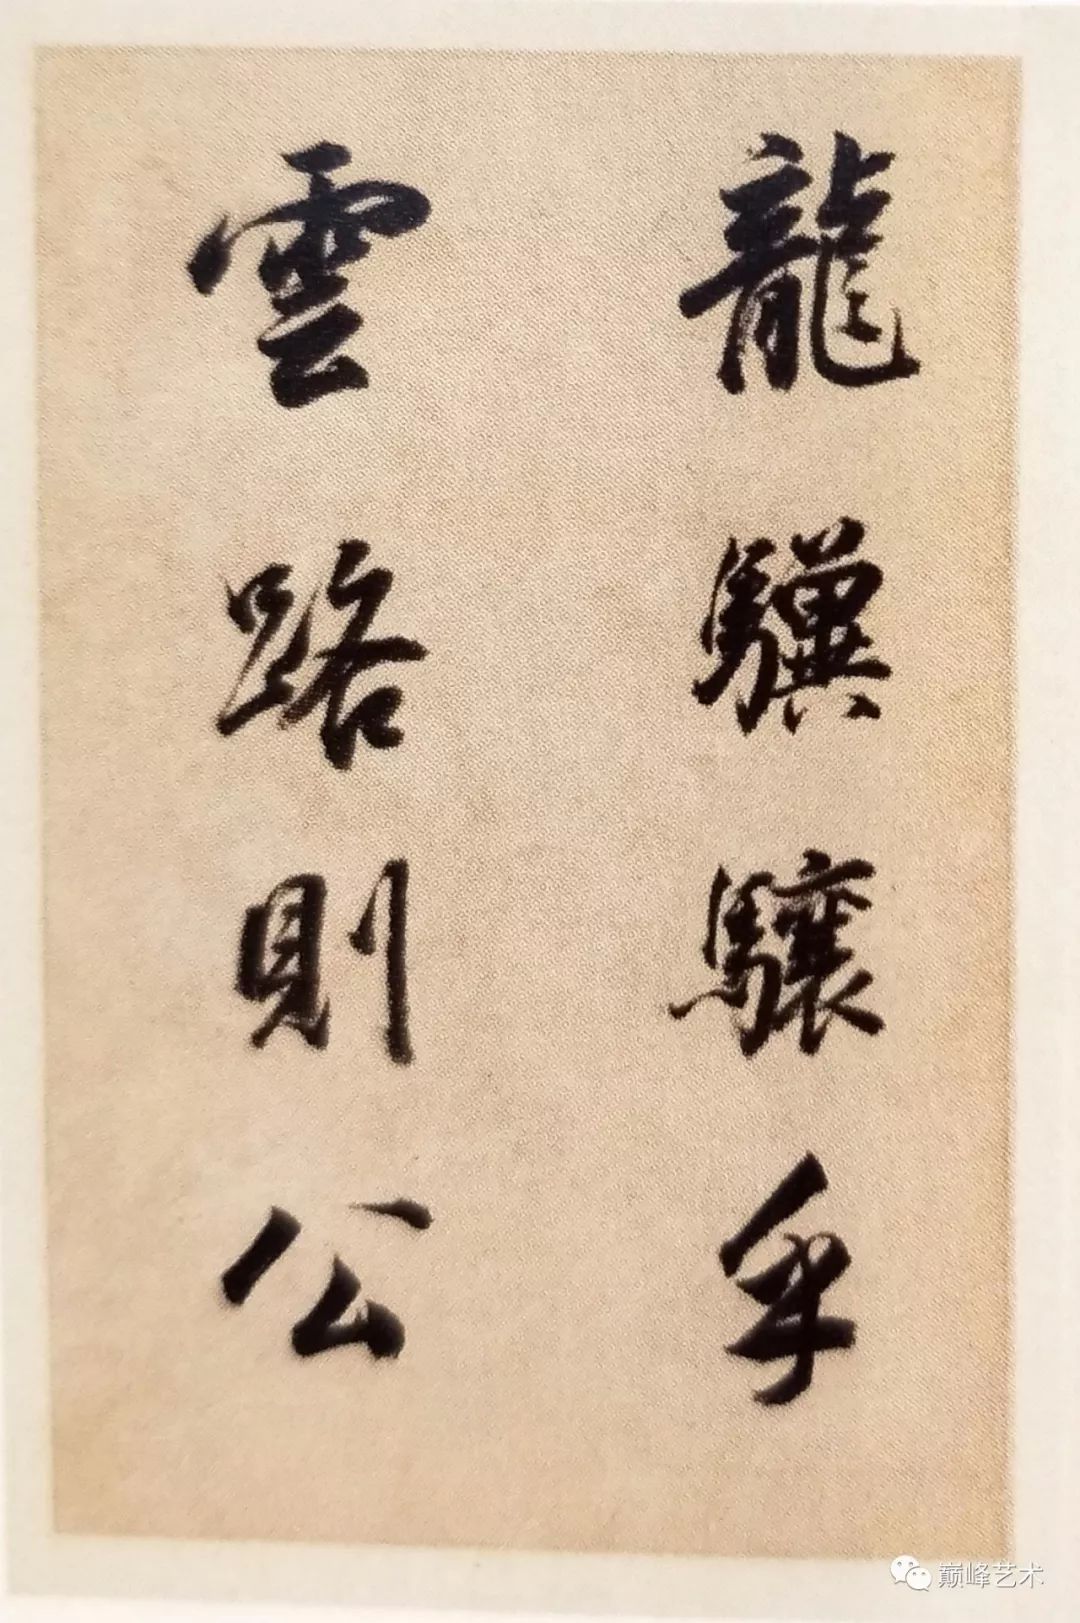 龍驥驤乎
雲路則公
巅峰艺术